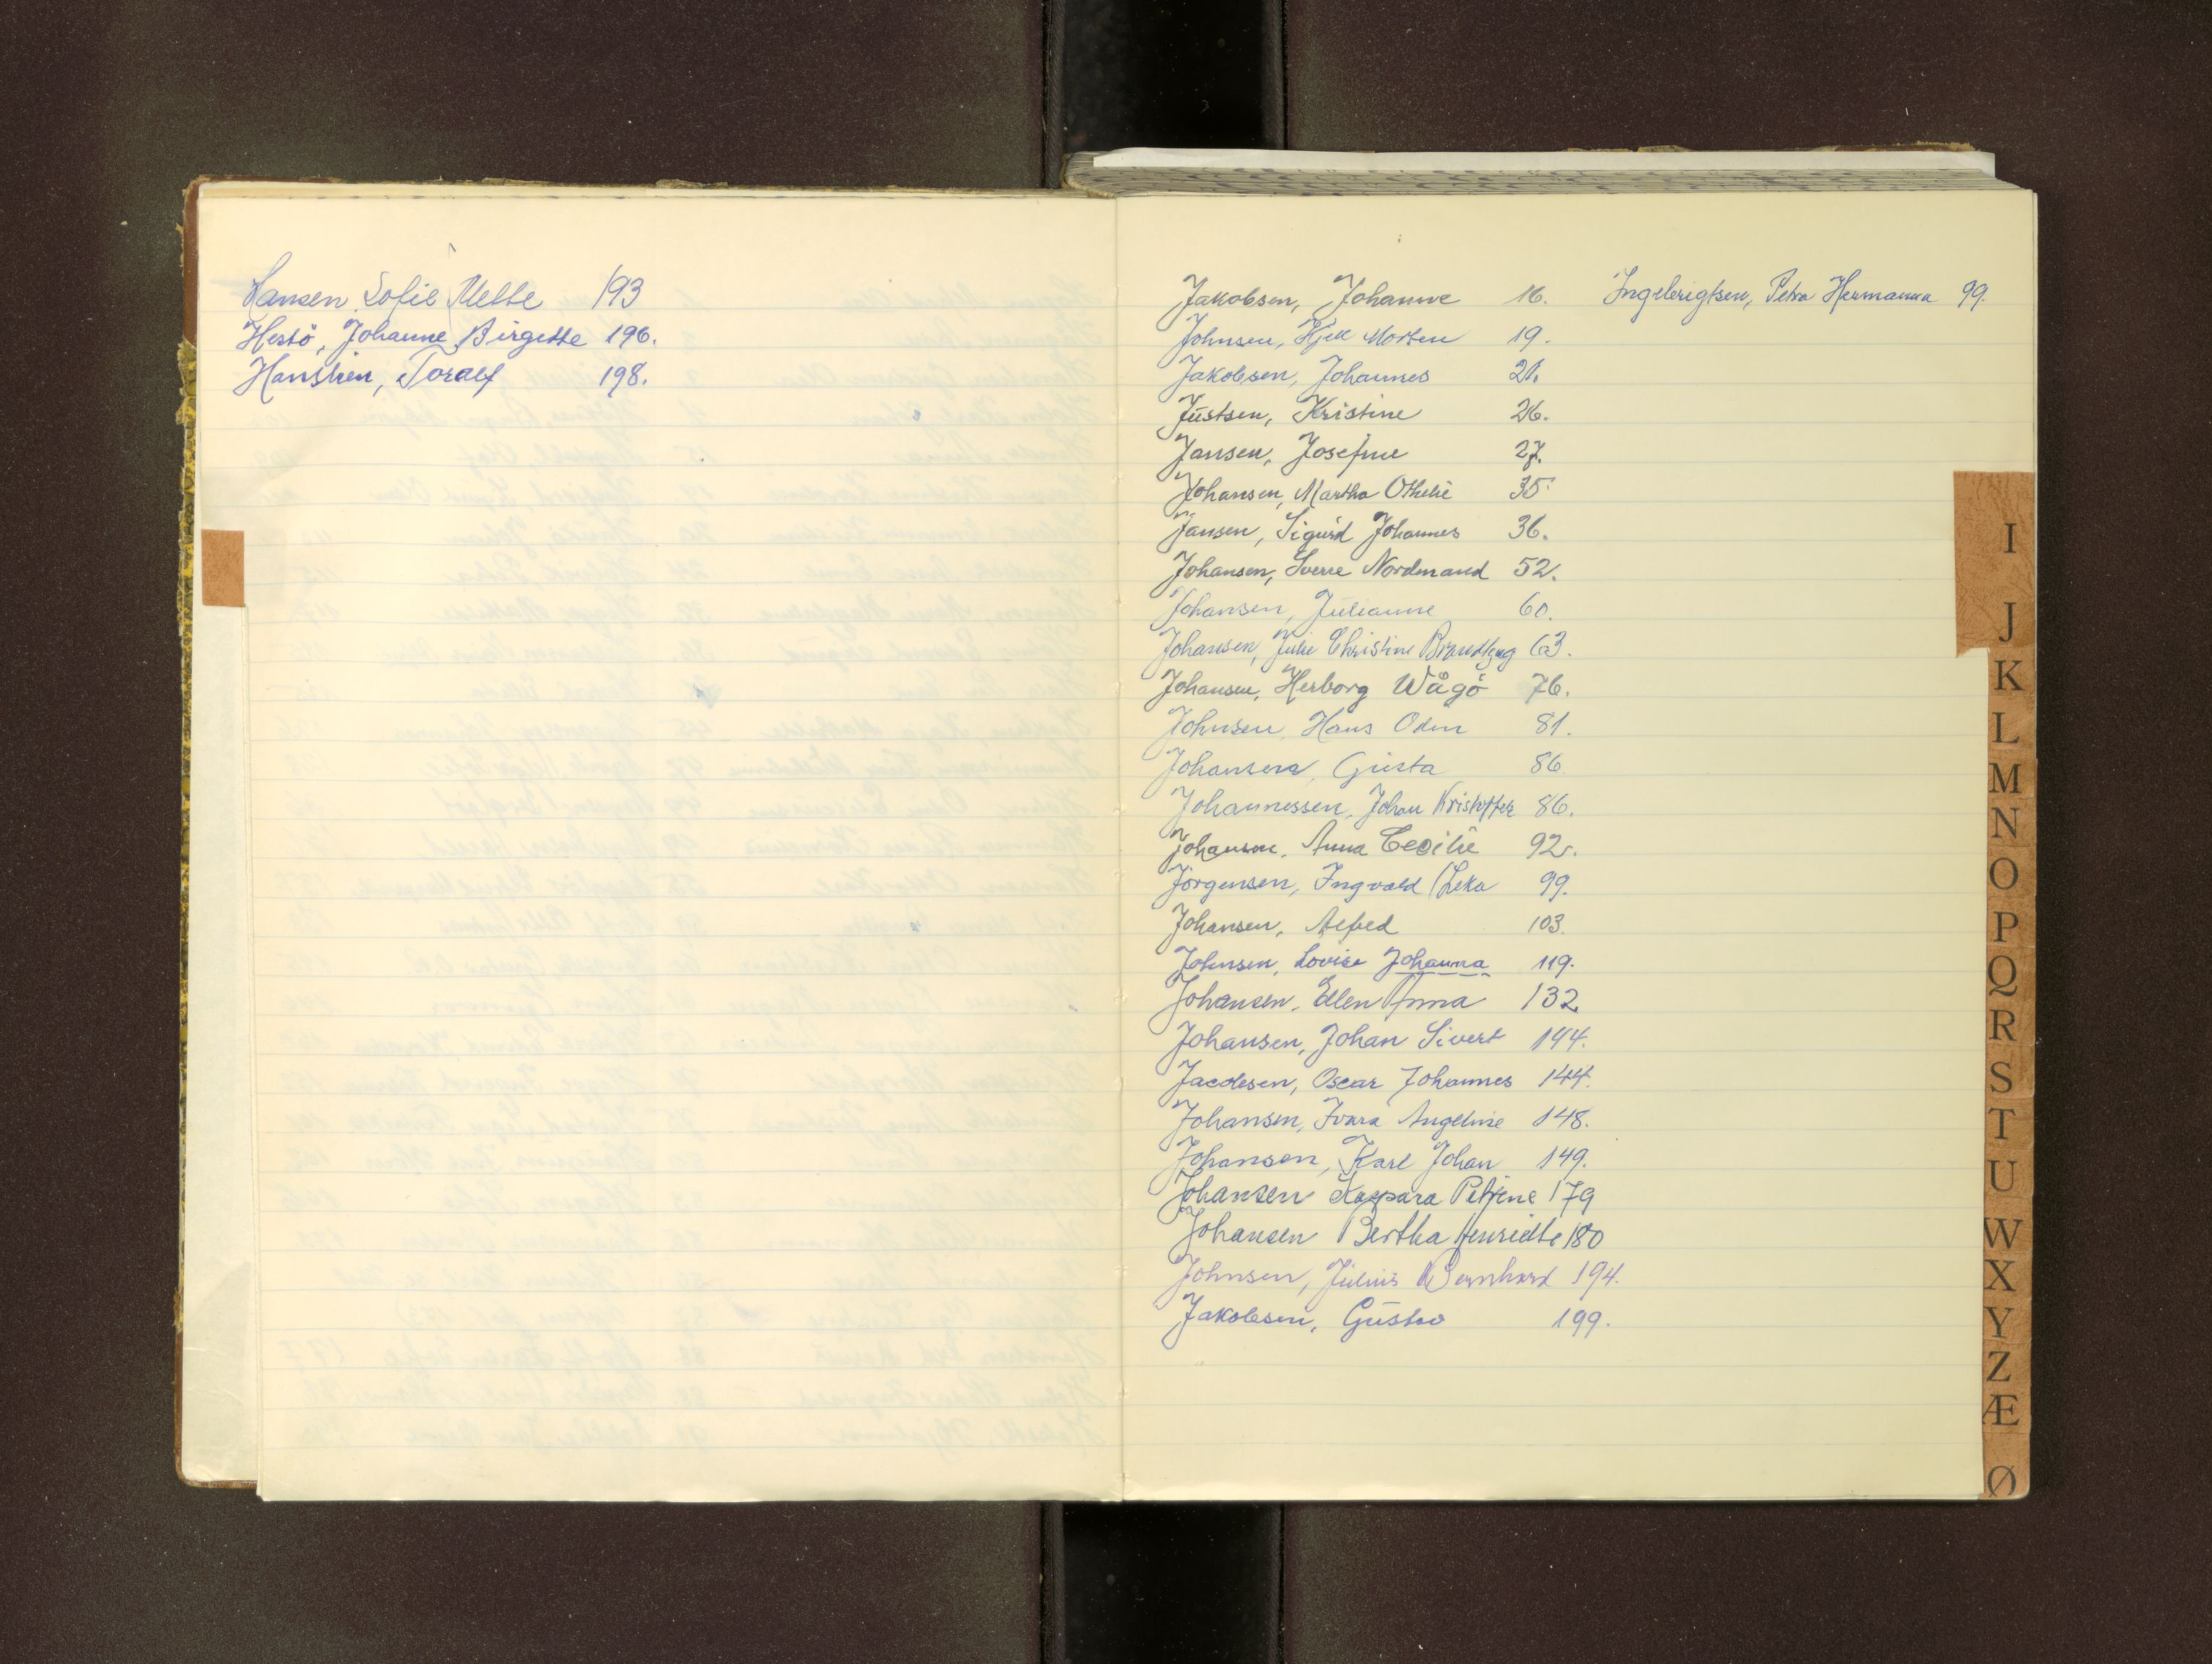 Hansen, Sofie Mette 193
Hestö, Johanne Birgitte 196.
Hanshien, Toralf 198.
Jakobsen, Johanne 16.
Johnsen, Kjell Morten 19.
Jakobsen, Johannes 21.
Justsen, Kristine 26.
Jansen, Josefine 27.
Johansen, Martha Othelie 35
Jansen, Sigurd Johannes 36.
Johansen, Sverre Nordmand 52.
Johansen, Julianne 60.
Johansen, Julie Christine Brandtzæg 63.
Johansen, Herborg Wågö 76.
Johnsen, Hans Odin 81.
Johansen, Gusta 86
Johannessen, Johan Kristoffer 86.
Johansen, Anna Cecilie 92.
Jörgensen, Ingvald (Leka 99.
Johansen, Alfred 103.
Johnsen, Lovise Johanna 119.
Johansen, Ellen Anna 132
Johansen, Johan Sivert 144.
Jacobsen, Oscar Johannes 144.
Johansen, Ivara Angeline 148.
Johansen, Karl Johan 149.
Johansen Kaspara Petrine 179
Johansen Bertha Henriette 180
Johnsen, Julius Bernhard 194.
Jakobsen, Gustav 199.
Ingebrigtsen, Petra Hermanna 99.
I
J
K
L
M
N
O
P
Q
R
S
T
U
W
X
Y
Z
Æ
Ø